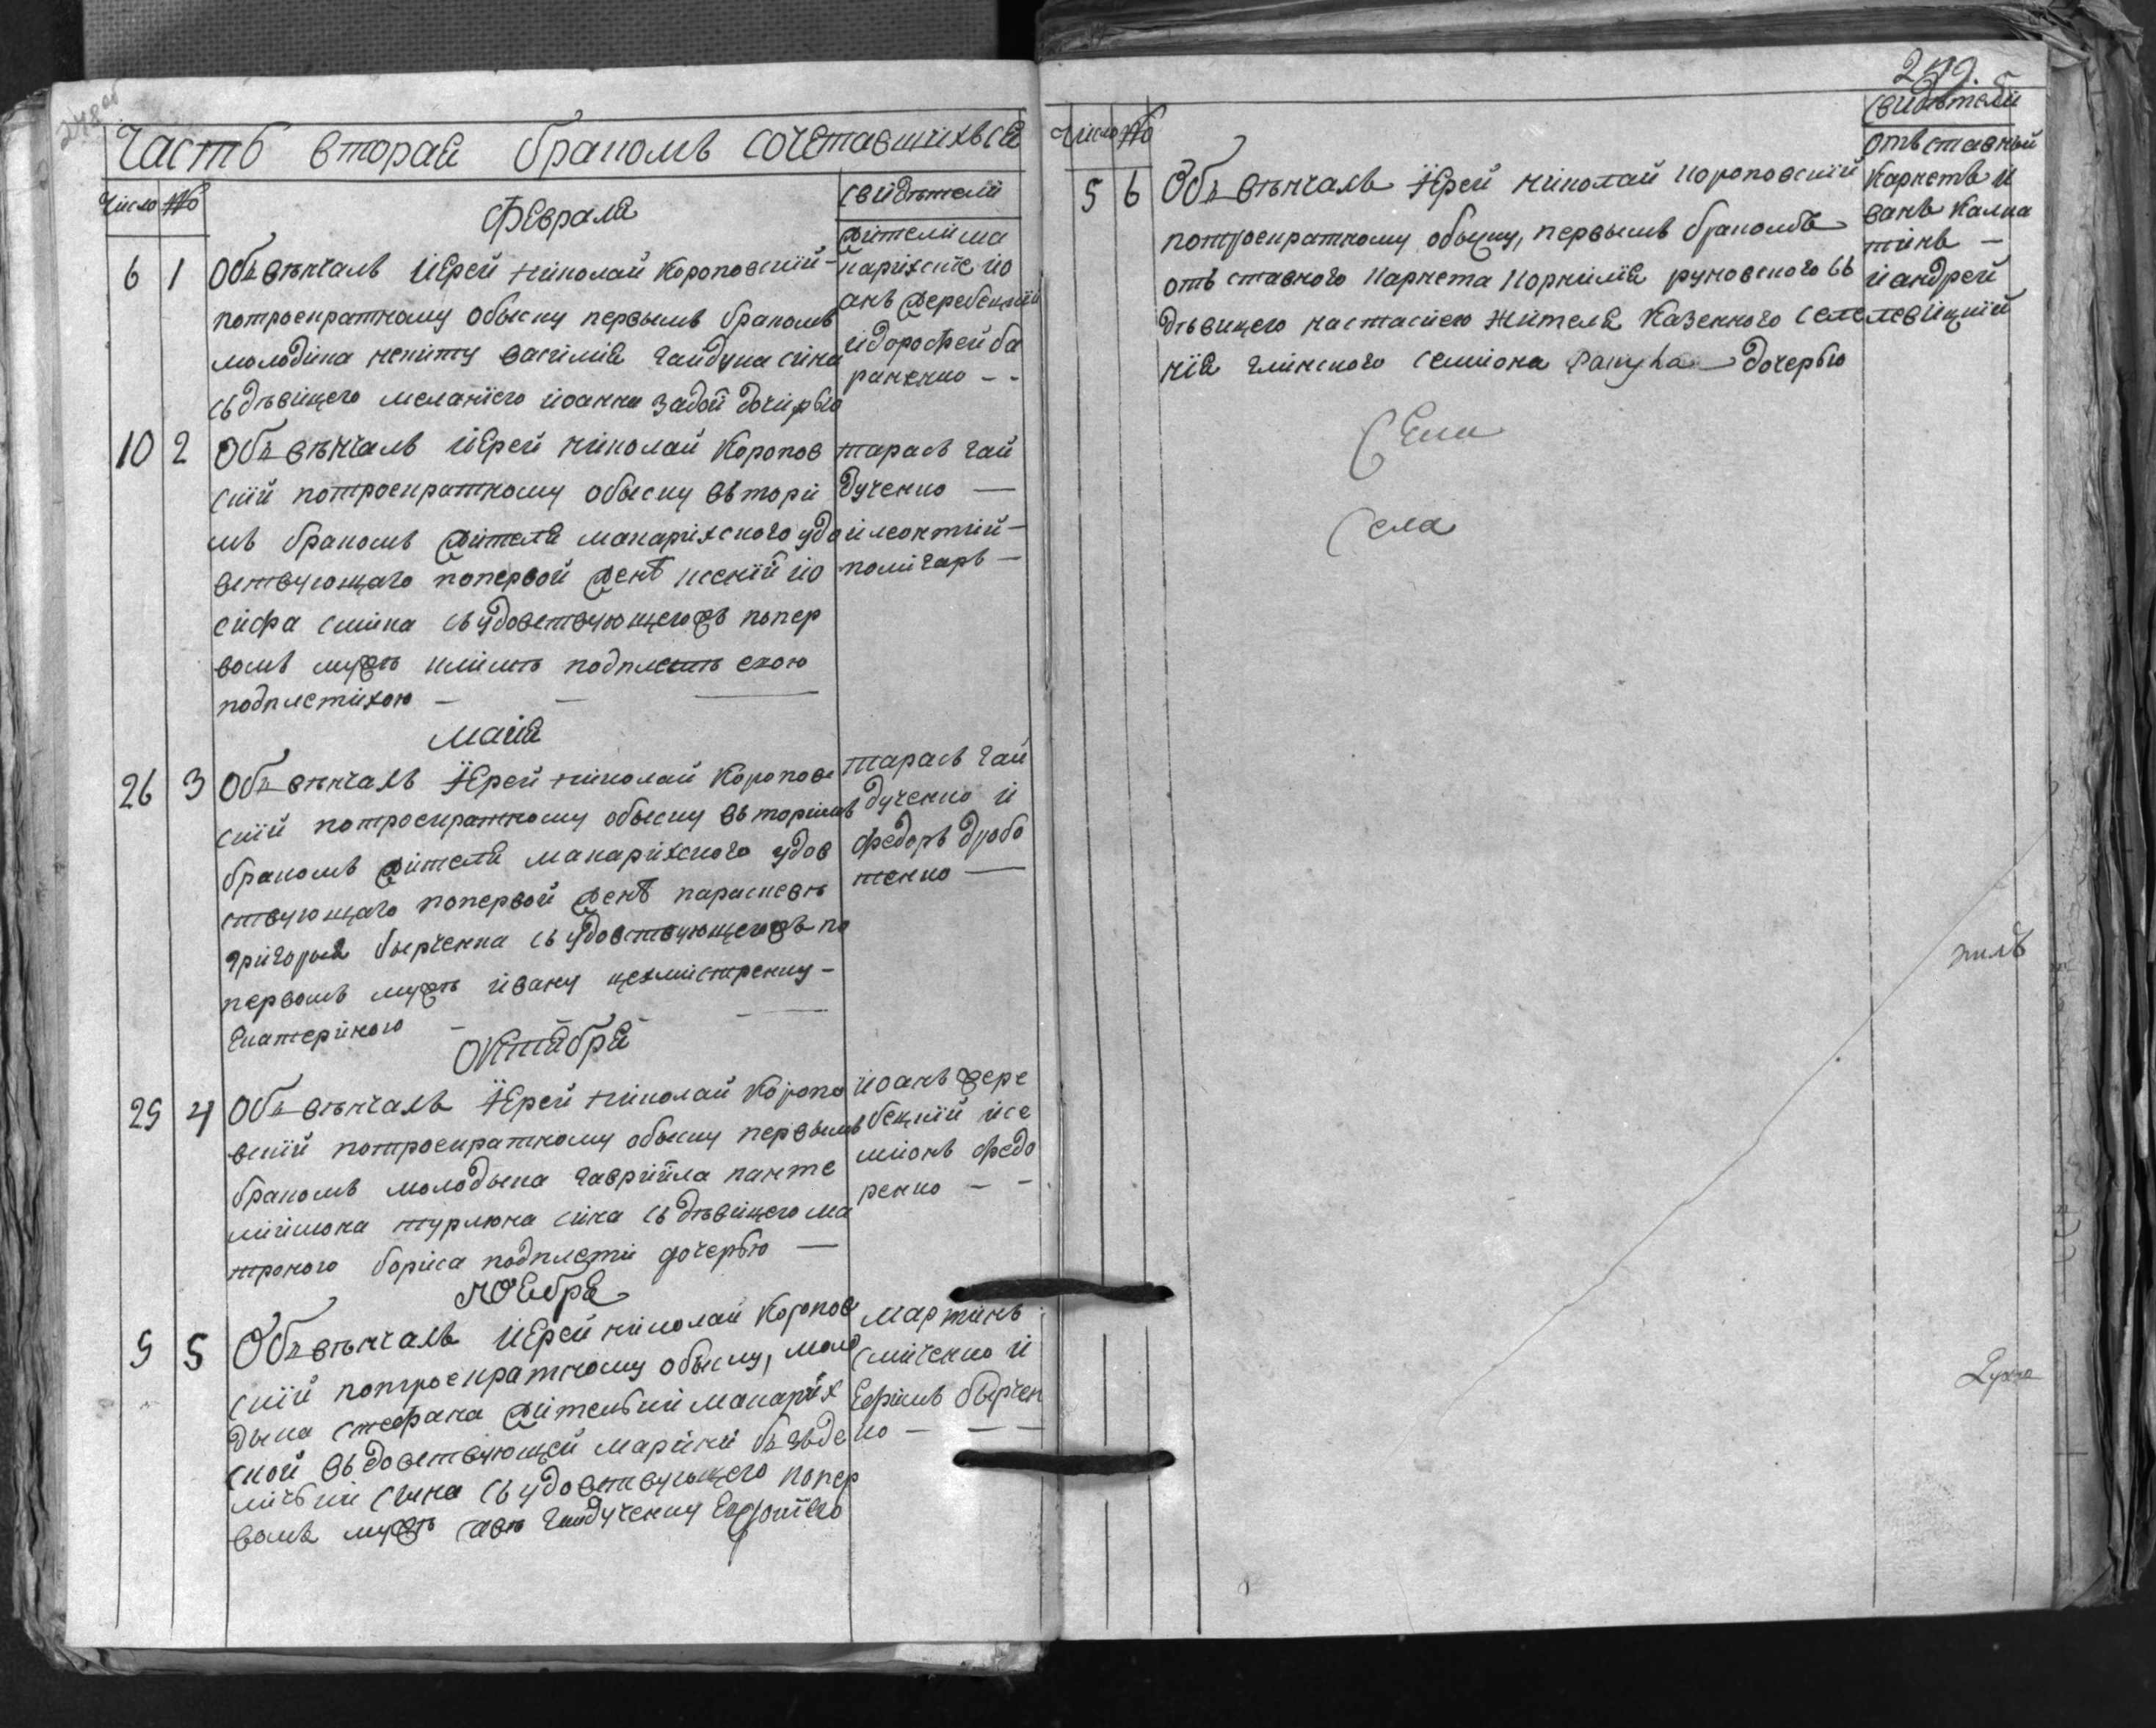 248об
Часть вторая бракомъ сочетавшихъся
Число №
Февраля
свидѣтели
6 1 Объ вѣнчалъ иерей николай Короповскій
потроекратному обыску первымъ бракомъ
молодика никиту василія гайдука сина
съ дѣвицею меланіею иоанна задой дочирью
жители ма
карихские ио
анъ жеребецкий
и дорофей ба
раненко - -
10 2 Объ вѣнчалъ иерей николай Коропов
скій потроекратному обыску вътори
мъ бракомъ жителя макарихского удо
вствующаго попервой женѣ ксении ио
сифа сшика съ удовствующею въ попер
вомъ мужѣ климѣ
подплетихою —
тарасъ гай
дученко —
и леонтий —
полигаръ —
маия
26 3 Объ вѣнчалъ Іерей николай Коропов
скій потроекратному обыску въторимъ
бракомъ жителя макарихского удов
ствующаго попервой женѣ параскевѣ
григория бырченка съ удовствующею по
первомъ мужѣ ивану цехмистренку —
Екатериною — — — —
тарасъ гай
дученко и
федоръ дробо
тенко —
Октября
29 4 Объ вѣнчалъ Іерей николай Коропо
вскій потроекратному обыску первымъ
бракомъ молодыка гавриила панте
лиимона турлюка сина съ дѣвицею ма
троною бориса подплетни дочерью —
иоанъ жере
бецкий и се
мионъ федо
ренко - -
ноября
5 5 Объ вѣнчалъ иерей николай Коропов
скій потроекратному обыску, моло
дыка стефана жительки макарих
ской въдовствующей марини
сына съ удовствующею попер
вомъ мужѣ савѣ гайдученку
мартинъ
смиченко и
Ефримъ бырчен
ко — — —
249.
Число №
свидѣтели
5 6 Объ вѣнчалъ Іерей николай короповскій
потроекратному обыску, первымъ бракомъ
отъ ставного каркета корнилія руковского съ
дѣвицею настасиею жителя Казенного селе
нія глинского семиона дочерью
отъ ставный
каркетъ и
ванъ калма
тинъ —
и андрей
левицкий
села
жилъ